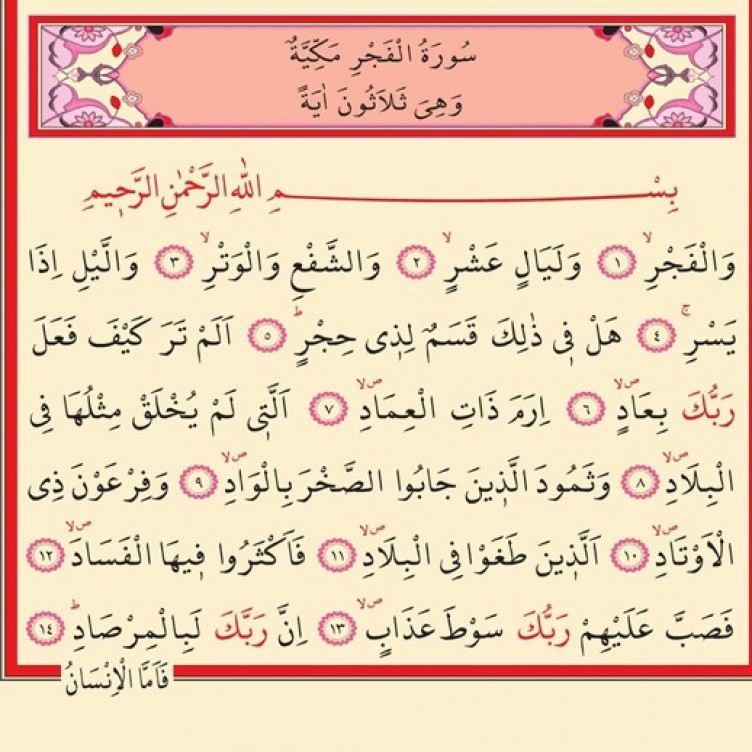 سُورَةُ الْفَجْرِ مَكِّيَّةٌ
وَهِىَ ثَلَاثُونَ اٰيَةً
بِسْمِ اللّٰهِ الرَّحْمٰنِ الرَّحٖيمِ
وَالْفَجْرِۙ ﴿١﴾ وَلَيَالٍ عَشْرٍۙ ﴿٢﴾ وَالشَّفْعِ وَالْوَتْرِۙ ﴿٣﴾ وَالَّيْلِ اِذَا
يَسْرِۚ ﴿٤﴾ هَلْ فٖى ذٰلِكَ قَسَمٌ لِذٖى حِجْرٍؕ ﴿٥﴾ اَلَمْ تَرَ كَيْفَ فَعَلَ
رَبُّكَ بِعَادٍۖۙ ﴿٦﴾ اِرَمَ ذَاتِ الْعِمَادِۖۙ ﴿٧﴾ اَلَّتٖى لَمْ يُخْلَقْ مِثْلُهَا فِى
الْبِلَادِۖۙ ﴿٨﴾ وَثَمُودَ الَّذٖينَ جَابُوا الصَّخْرَ بِالْوَادِۖۙ ﴿٩﴾ وَفِرْعَوْنَ ذِى
الْاَوْتَادِۖۙ ﴿١٠﴾ اَلَّذٖينَ طَغَوْا فِى الْبِلَادِۖۙ ﴿١١﴾ فَاَكْثَرُوا فٖيهَا الْفَسَادَۖۙ ﴿١٢﴾
فَصَبَّ عَلَيْهِمْ رَبُّكَ سَوْطَ عَذَابٍۖۙ ﴿١٣﴾ اِنَّ رَبَّكَ لَبِالْمِرْصَادِؕ ﴿١٤﴾
فَاَمَّا الْاِنْسَانُ